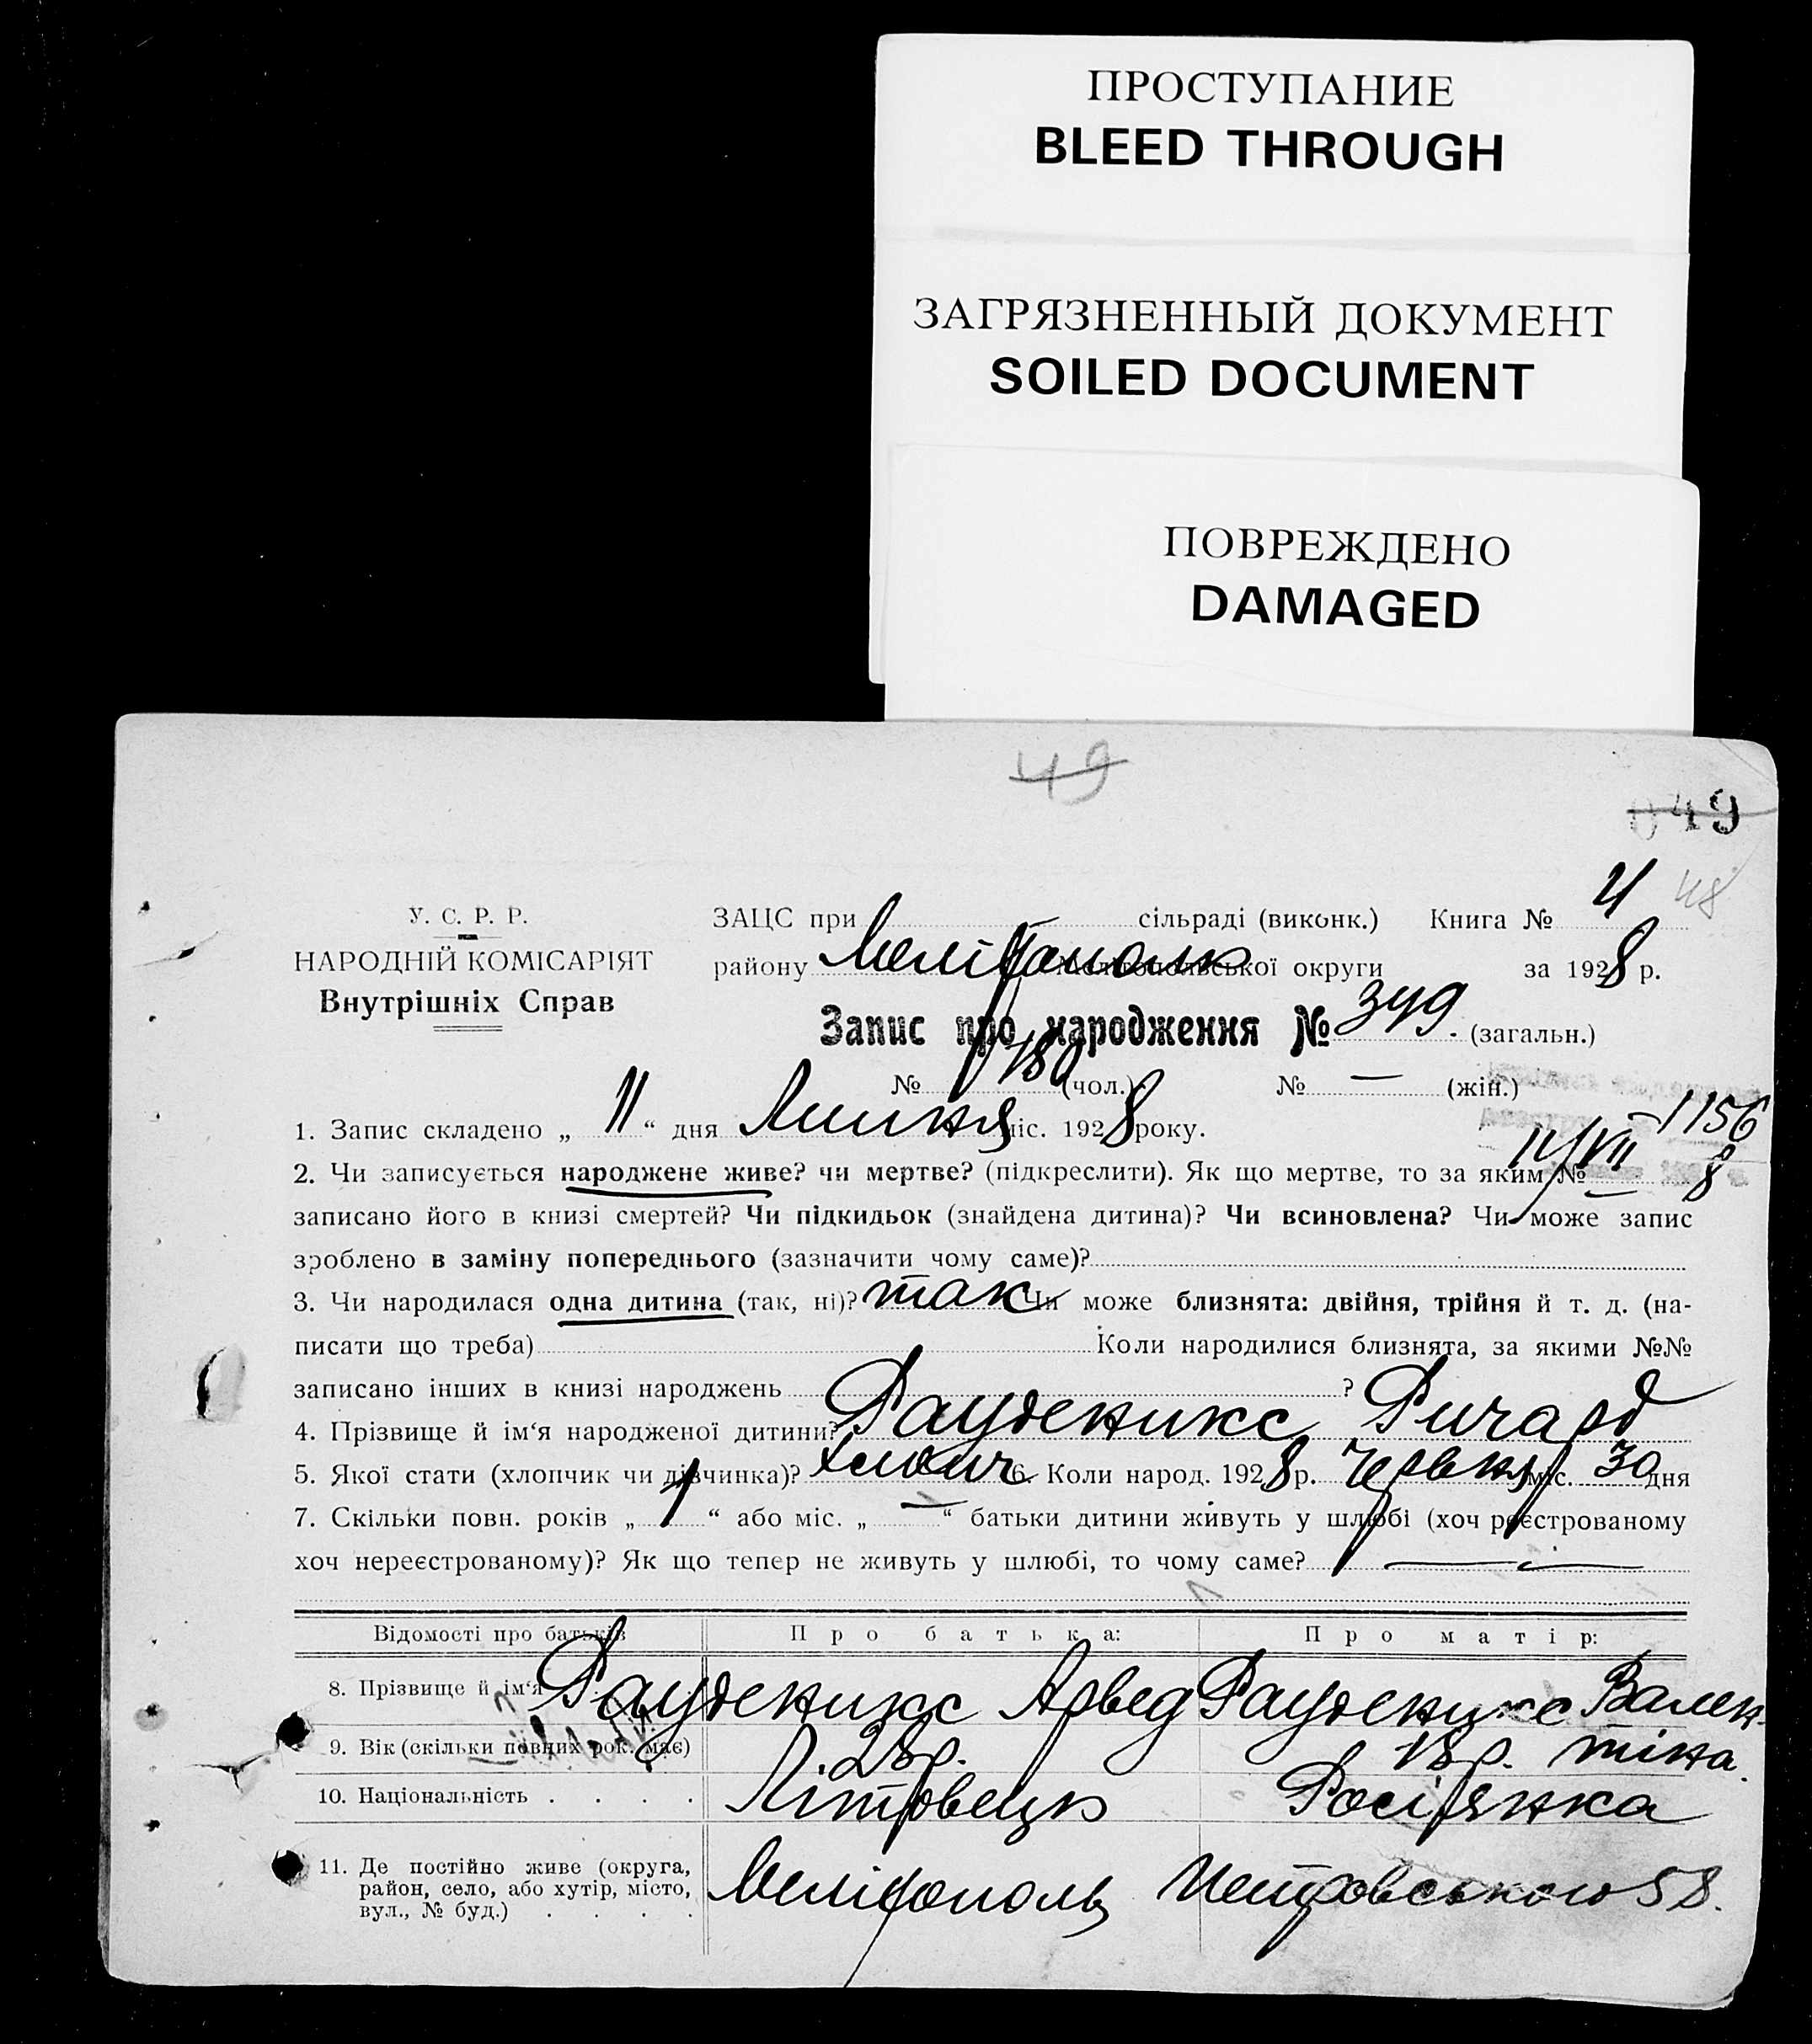 ПРОСТУПАНИЕ
BLEED THROUGH
ЗАГРЯЗНЕННЫЙ ДОКУМЕНТ
SOILED DOCUMENT
ПОВРЕЖДЕНО
DAMAGED
49
049
4 48
У. С. Р. Р.
НАРОДНІЙ КОМІСАРІЯТ
Внутрішніх Справ
ЗАЦС при сільраді (виконк.) Книга №
району Мелітополь Мелітопольської округи за 1928 р.
Запис про народження № 349 (загальн.)
№ 180 (чол.) № — (жін.)
1156
1. Запис складено „ 11 “ дня Липня міс. 1928 року.
14/VII 8
2. Чи записується народжене живе? чи мертве? (підкреслити). Як що мертве, то за яким № —
записано його в книзі смертей? Чи підкидьок (знайдена дитина)? Чи всиновлена? Чи може запис
зроблено в заміну попереднього (зазначити чому саме)?
3. Чи народилася одна дитина (так, ні)? так Чи може близнята: двійня, трійня й т. д. (на-
писати що треба) Коли народилися близнята, за якими №№
записано інших в книзі народжень ?
4. Прізвище й ім‘я народженої дитини? Рауденикс Ричард
5. Якої стати (хлопчик чи дівчинка)? хлопч 6. Коли народ. 1928 р. Червня міс. 30 дня
7. Скільки повн. років „ 1 “ або міс. „ — “ батьки дитини живуть у шлюбі (хоч реєстрованому
хоч нереєстрованому)? Як що тепер не живуть у шлюбі, то чому саме? —
Відомості про батьків Про батька: Про матір:
8. Прізвище й ім‘я Рауденикс Арвед Рауденикс Вален-
9. Вік (скільки повних рок. має) 28 р. 18 р. тіна.
10. Національність . . . . Літовець Росіянка
11. Де постійно живе (округа,
район, село, або хутір, місто,
вул., № буд.) . . . . Мелітополь Петровського 58.